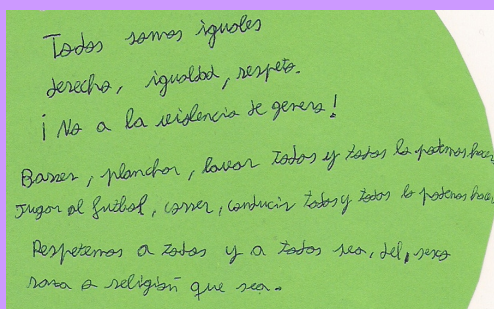 Todos somos iguales
derecho, igualdad, respeto.
¡No a la violencia de genero!
Barrer, planchar, lavar todos y todas lo podemos hacer
Jugar al futbol, correr, conducir todas y todos lo podemos hacer
Respetemos a todas y a todos sea, del, sexo
raza o religión que sea.